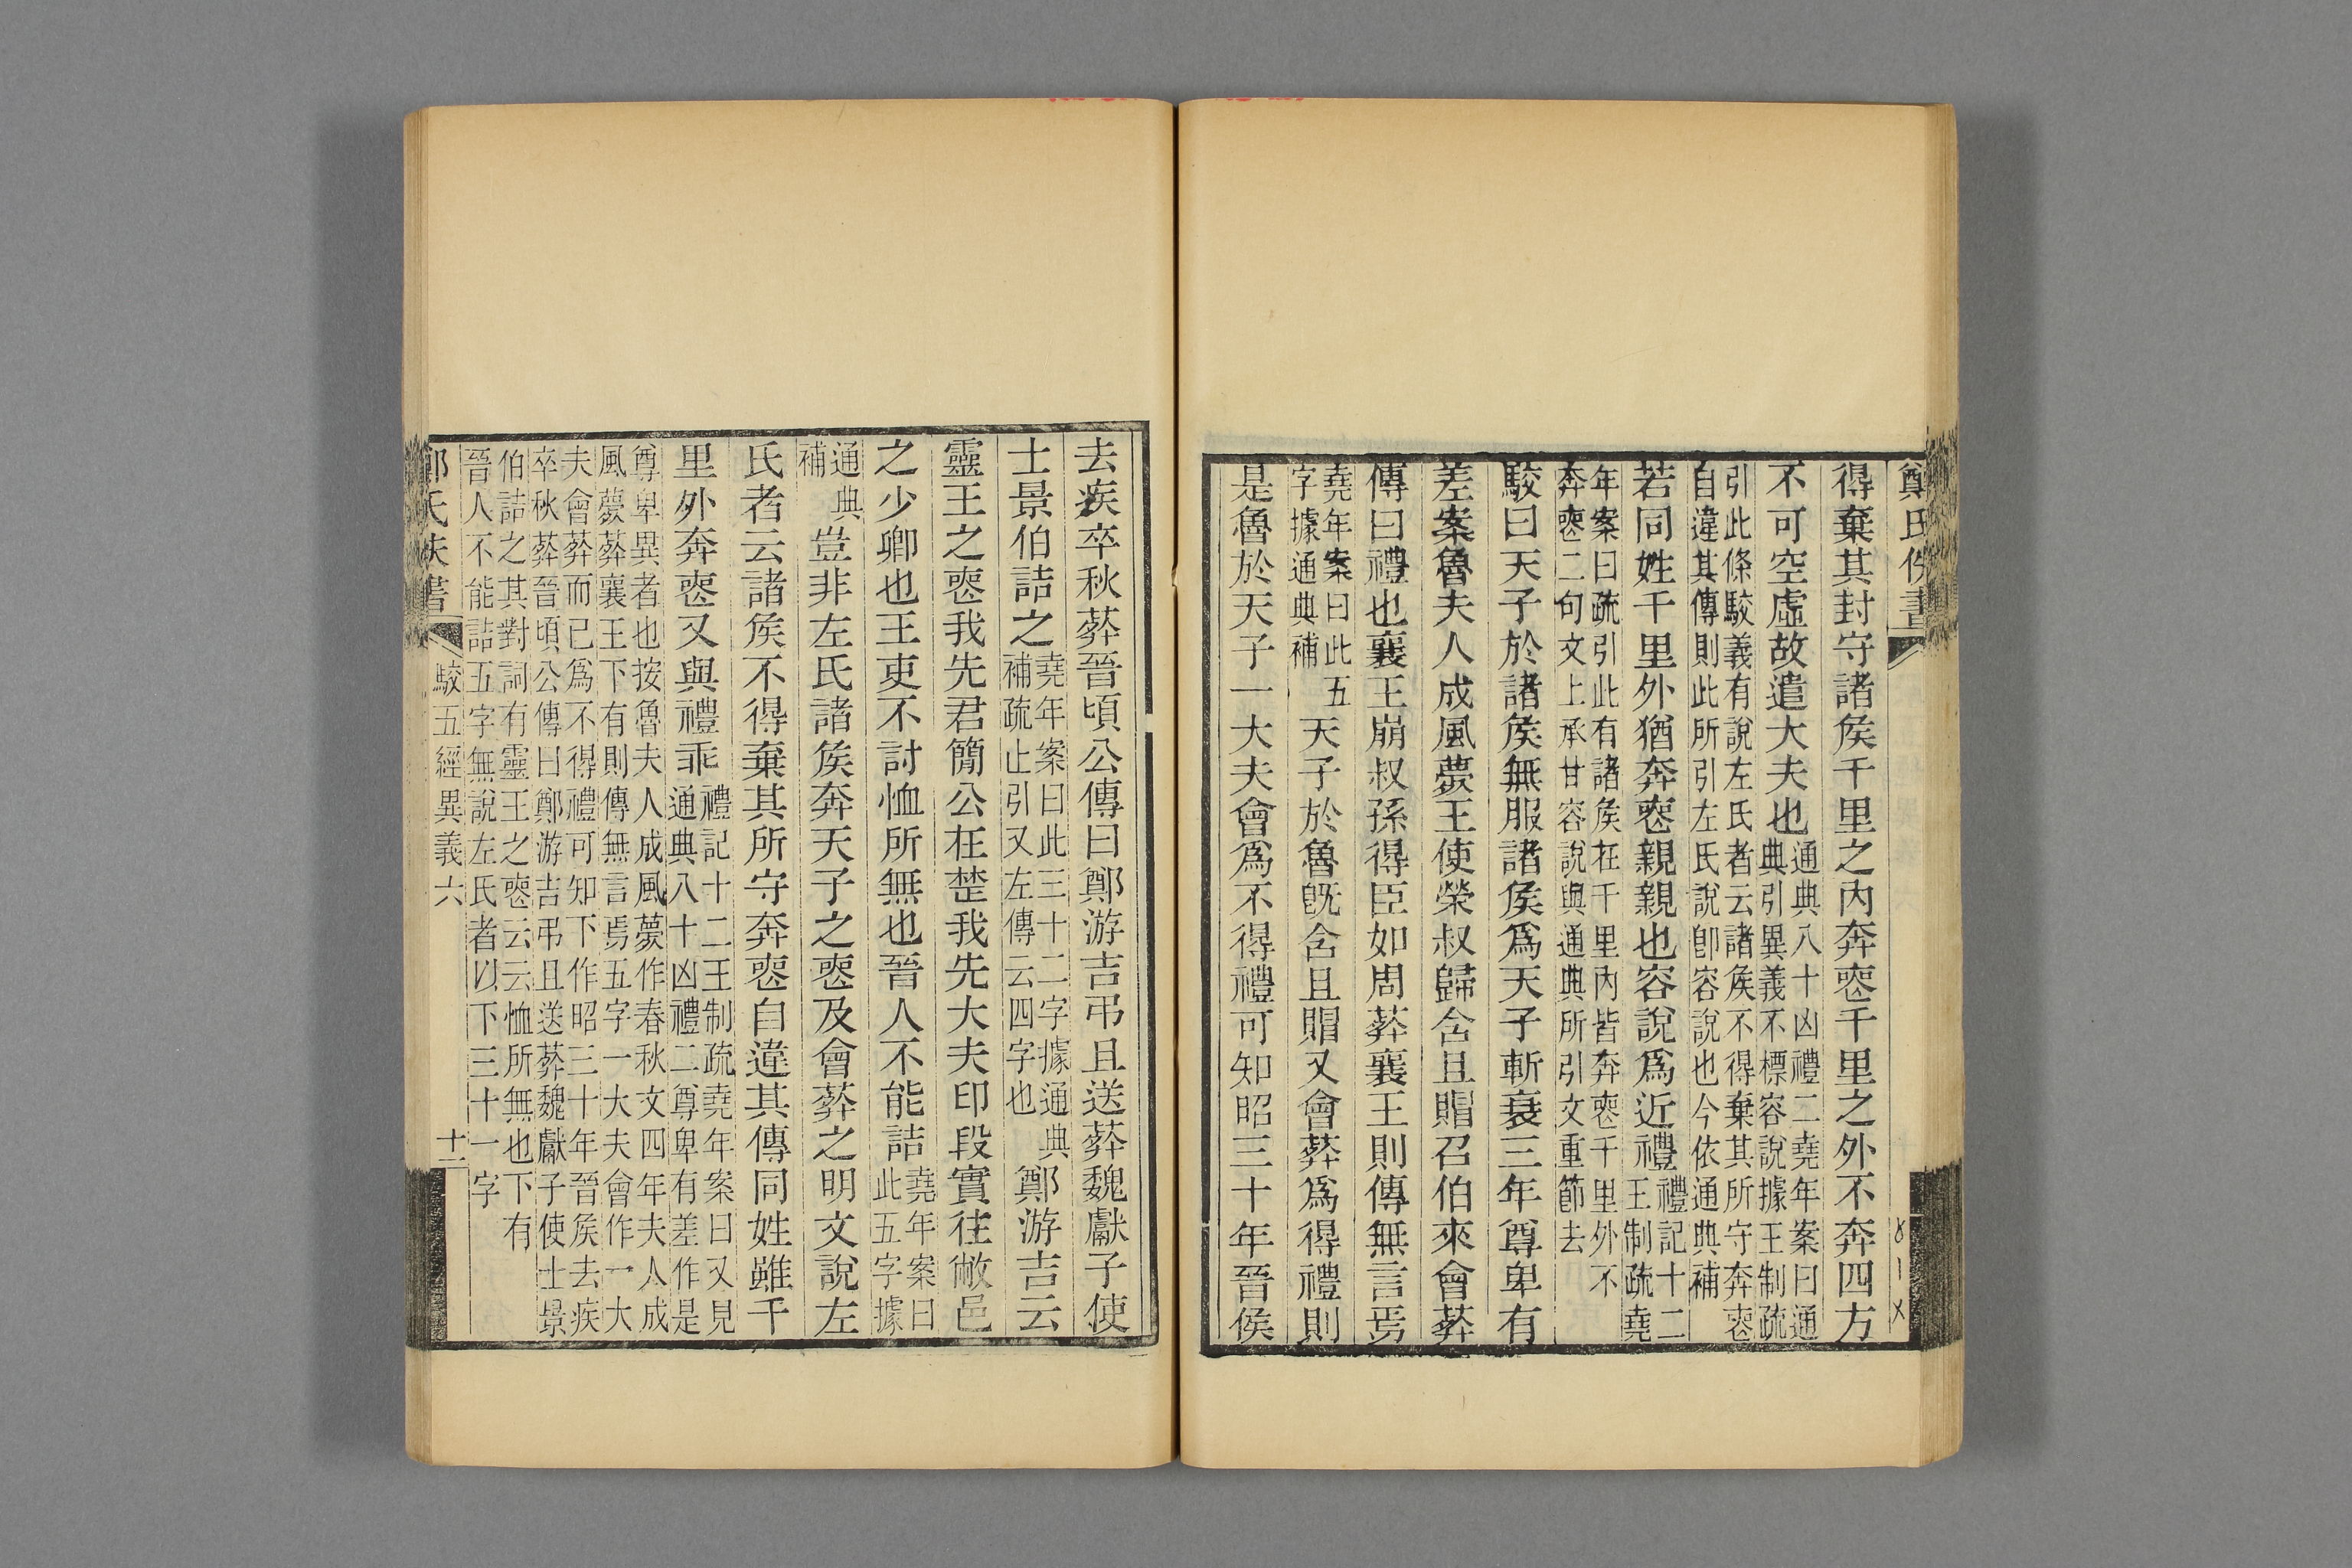 鄭氏佚書
得棄其封守諸矦千里之內奔䘮千里之外不奔四方
不可空虛故遣大夫也通典八十凶禮二堯年案曰通
典引異義不標容說據王制疏
引此條駮義有說左氏者云諸矦不得棄其所守奔䘮
自違其傳則此所引左氏說卽容說也今依通典補
若同姓千里外猶奔䘮親親也容說爲近禮禮記十二
王制疏堯
年案曰疏引此有諸矦在千里內皆奔䘮千里外不
奔䘮二句文上承甘容說與通典所引文重節去
駮曰天子於諸矦無服諸矦爲天子斬衰三年尊卑有
差案魯夫人成風薨王使榮叔歸含且賵召伯來會葬
傳曰禮也襄王崩叔孫得臣如周葬襄王則傳無言焉
堯年案曰此五
字據通典補天子於魯旣含且賵又會葬爲得禮則
是魯於天子一大夫會爲不得禮可知昭三十年晉侯
去疾卒秋葬晉頃公傳曰鄭游吉弔且送葬魏獻子使
士景伯詰之堯年案曰此三十二字據通典
補疏止引又左傳云四字也鄭游吉云
靈王之䘮我先君簡公在楚我先大夫印段實往敝邑
之少卿也王吏不討恤所無也晉人不能詰堯年案曰
此五字據
通典
補豈非左氏諸矦奔天子之䘮及會葬之明文說左
氏者云諸矦不得棄其所守奔䘮自違其傳同姓雖千
里外奔䘮又與禮乖禮記十二王制疏堯年案曰又見
通典八十凶禮二尊卑有差作是
尊卑異者也按魯夫人成風薨作春秋文四年夫人成
風薨葬襄王下有則傳無言焉五字一大夫會作一大
夫會葬而已爲不得禮可知下作昭三十年晉矦去疾
卒秋葬晉頃公傳曰鄭游吉弔且送葬魏獻子使士景
伯詰之其對詞有靈王之䘮云云恤所無也下有
晉人不能詰五字無說左氏者以下三十一字
鄭氏佚書 駮五經異義六 十一